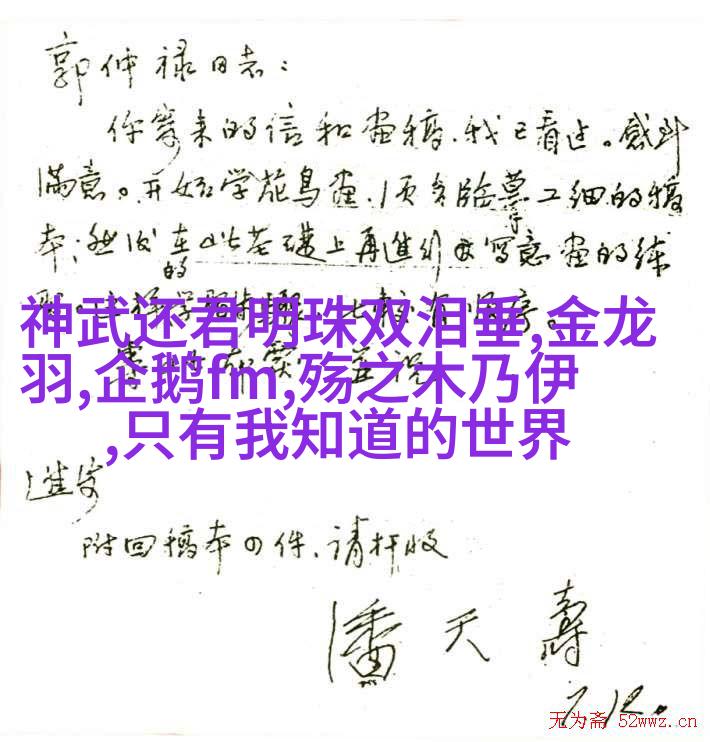 郭仲禄同志：
你寄来的信和画稿，我已看过。感到
满意。开始学花鸟画，须多临摹工细的稿
本；然后在此基础上再进行写意画的练
的
神武还君明珠双泪垂,金龙
羽,企鹅fm,殇之木乃伊
,只有我知道的世界
进步
附回稿本四件、请查收
潘天寿
7.12.
无为斋 52wwz.cn